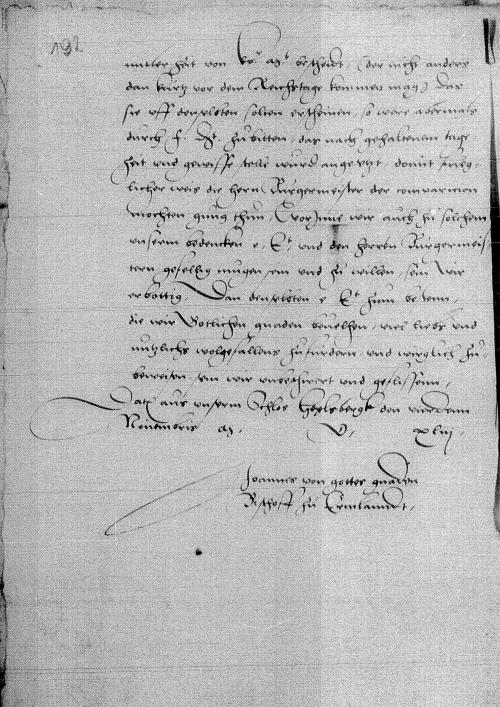 192
mitler zeit von kr mt bescheidt, (der nicht anders
dan kurtz vor dem Reichstage kommen mag) das
sie uff denselbten solten erscheinen, so were abermals
durch f. Dt. zu bitten, das nach gehaltenem tage
zeit und gewisse stelle wurd angesetzt, domit
licher weis die hern Burgermeister der comparicion
mochten gnug thun, Worinne wir auch zu solchem
unserm bedencken e. Et. und den herren Burgermeis
tern gefellig mugen sein und zu willen, sein wir
erbottig, Dan denselbten e Et zum besten,
die wir Gotlichen gnaden bevelhen, viel liebs und
nutzlichs wolgefallens zufurdern, und wirglich zu
beweisen, sein wir unbeschwert und geflissenn,
Datz aus unserm Schlos Heylsbergk den
Novembris D. xliij.
Joannes von gottes gnaden
Bischoff zu Ermlanndt,